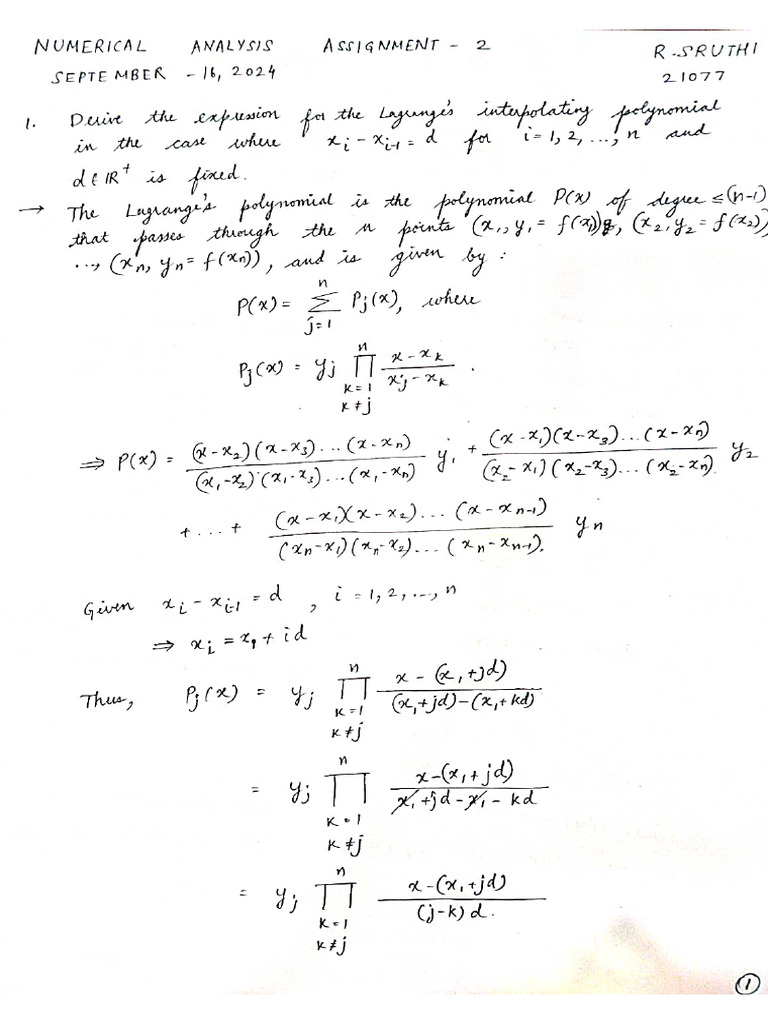 NUMERICAL ANALYSIS ASSIGNMENT - 2 R. SRUTHI
SEPTEMBER - 16, 2024 21077
1. Derive the expression for the Lagrange's interpolating polynomial
in the case where x_i - x_{i-1} = d for i = 1, 2, ..., n and
d ∈ IR^+ is fixed.
→ The Lagrange's polynomial is the polynomial P(x) of degree ≤ (n-1)
that passes through the n points (x_1, y_1 = f(x_1)), (x_2, y_2 = f(x_2)),
..., (x_n, y_n = f(x_n)), and is given by :
P(x) = ∑_{j=1}^{n} P_j(x), where
P_j(x) = y_j ∏_{k=1, k≠j}^{n} (x - x_k)/(x_j - x_k) .
⇒ P(x) = ((x-x_2)(x-x_3)...(x-x_n))/((x_1-x_2)(x_1-x_3)...(x_1-x_n)) y_1 + ((x-x_1)(x-x_3)...(x-x_n))/((x_2-x_1)(x_2-x_3)...(x_2-x_n)) y_2
+ ... + ((x-x_1)(x-x_2)...(x-x_{n-1}))/((x_n-x_1)(x_n-x_2)...(x_n-x_{n-1})) y_n
Given x_i - x_{i-1} = d , i = 1, 2, ..., n
⇒ x_i = x_1 + id
Thus, P_j(x) = y_j ∏_{k=1, k≠j}^{n} (x - (x_1+jd))/((x_1+jd)-(x_1+kd))
= y_j ∏_{k=1, k≠j}^{n} (x-(x_1+jd))/(x_1+jd-x_1-kd)
= y_j ∏_{k=1, k≠j}^{n} (x-(x_1+jd))/((j-k)d.)
1